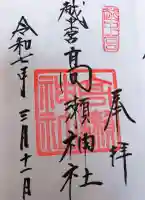 奉拝
越中一宮
髙瀬神社
令和七年三月十一日